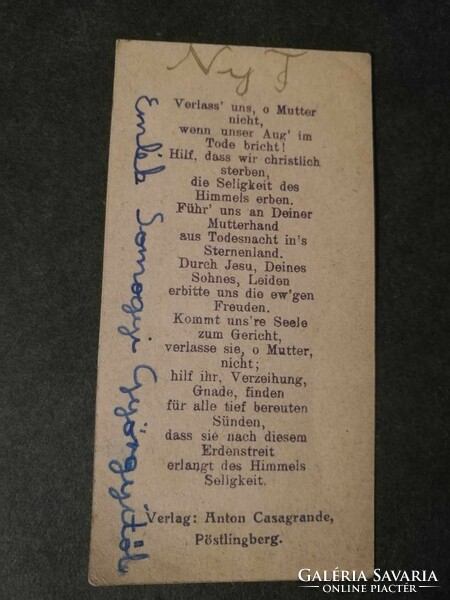 Ny F
Verlass' uns, o Mutter
nicht,
wenn unser Aug' im
Tode bricht!
Hilf, dass wir christlich
sterben,
die Seligkeit des
Himmels erben.
Führ' uns an Deiner
Mutterhand
aus Todesnacht in's
Sternenland.
Durch Jesu, Deines
Sohnes, Leiden
erbitte uns die ew'gen
Freuden.
Kommt uns're Seele
zum Gericht,
verlasse sie, o Mutter,
nicht;
hilf ihr, Verzeihung,
Gnade, finden
für alle tief bereuten
Sünden,
dass sie nach diesem
Erdenstreit
erlangt des Himmels
Seligkeit.
Verlag: Anton Casagrande,
Pöstlingberg.
Emlék Somogyi Györgyitől
GALÉRIA SAVARIA
ONLINE PIACTÉR